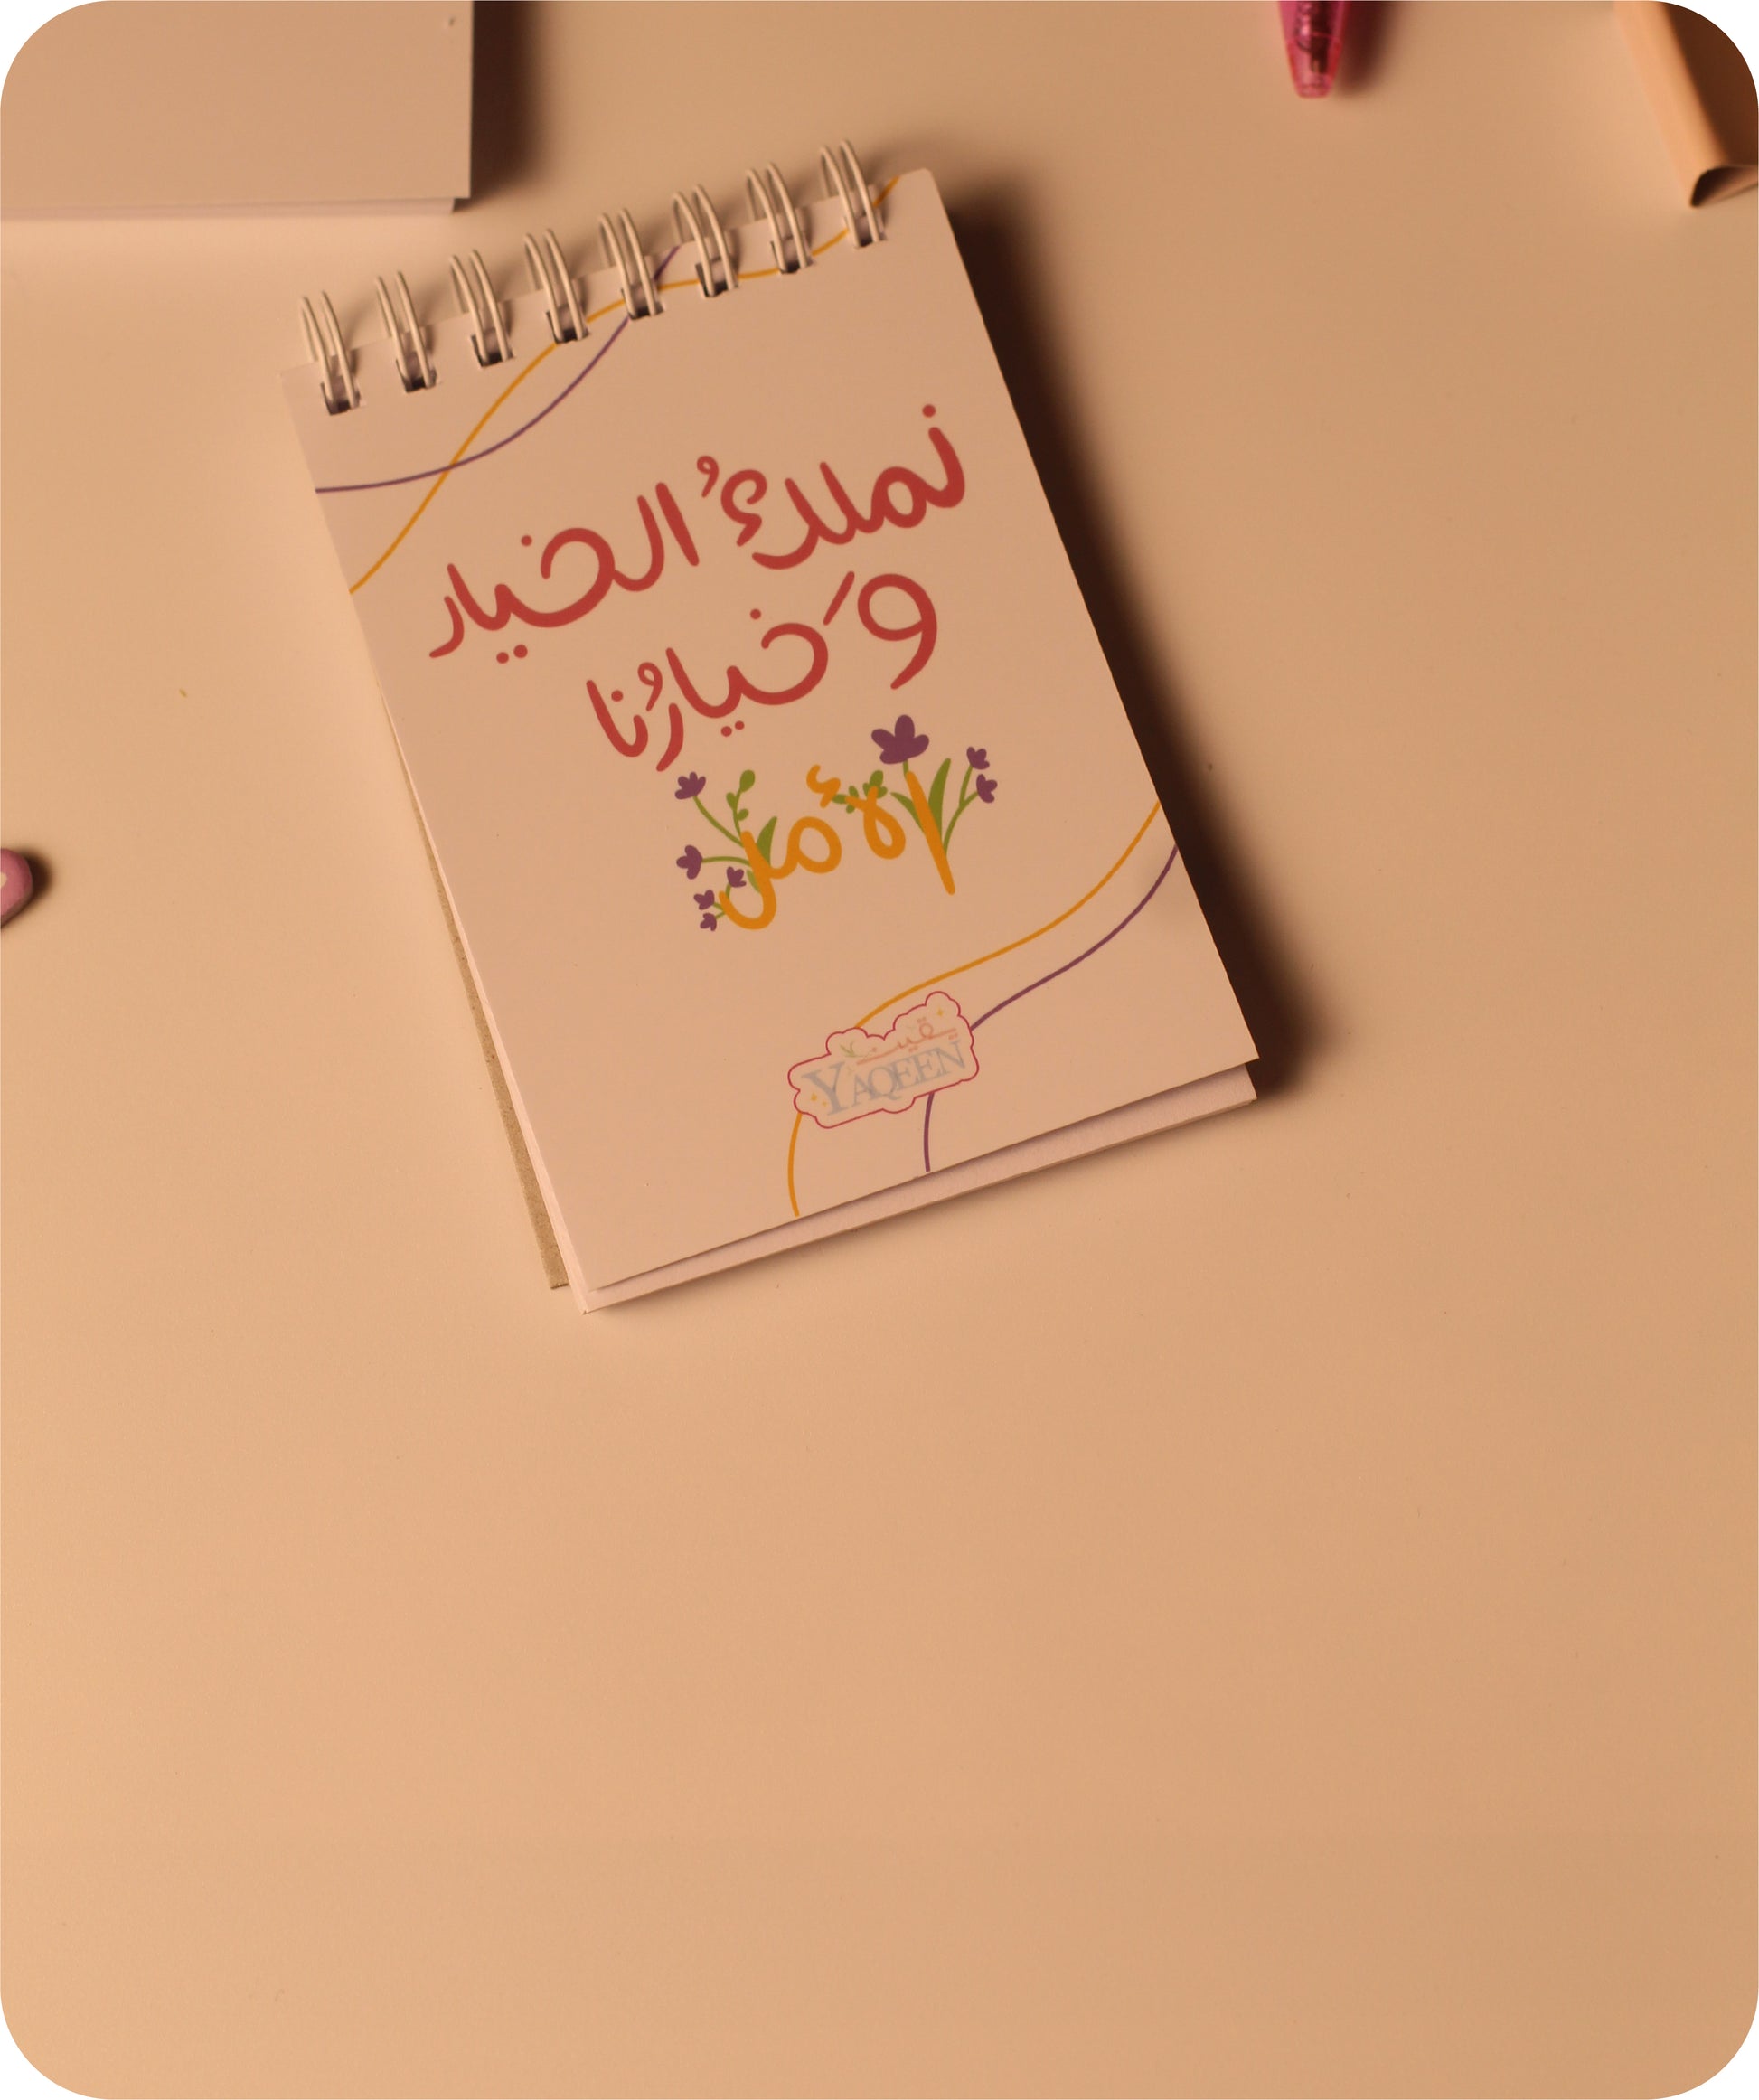 نملكُ الخيار
وَخيارُنا
الأمل
يقين
YAQEEN